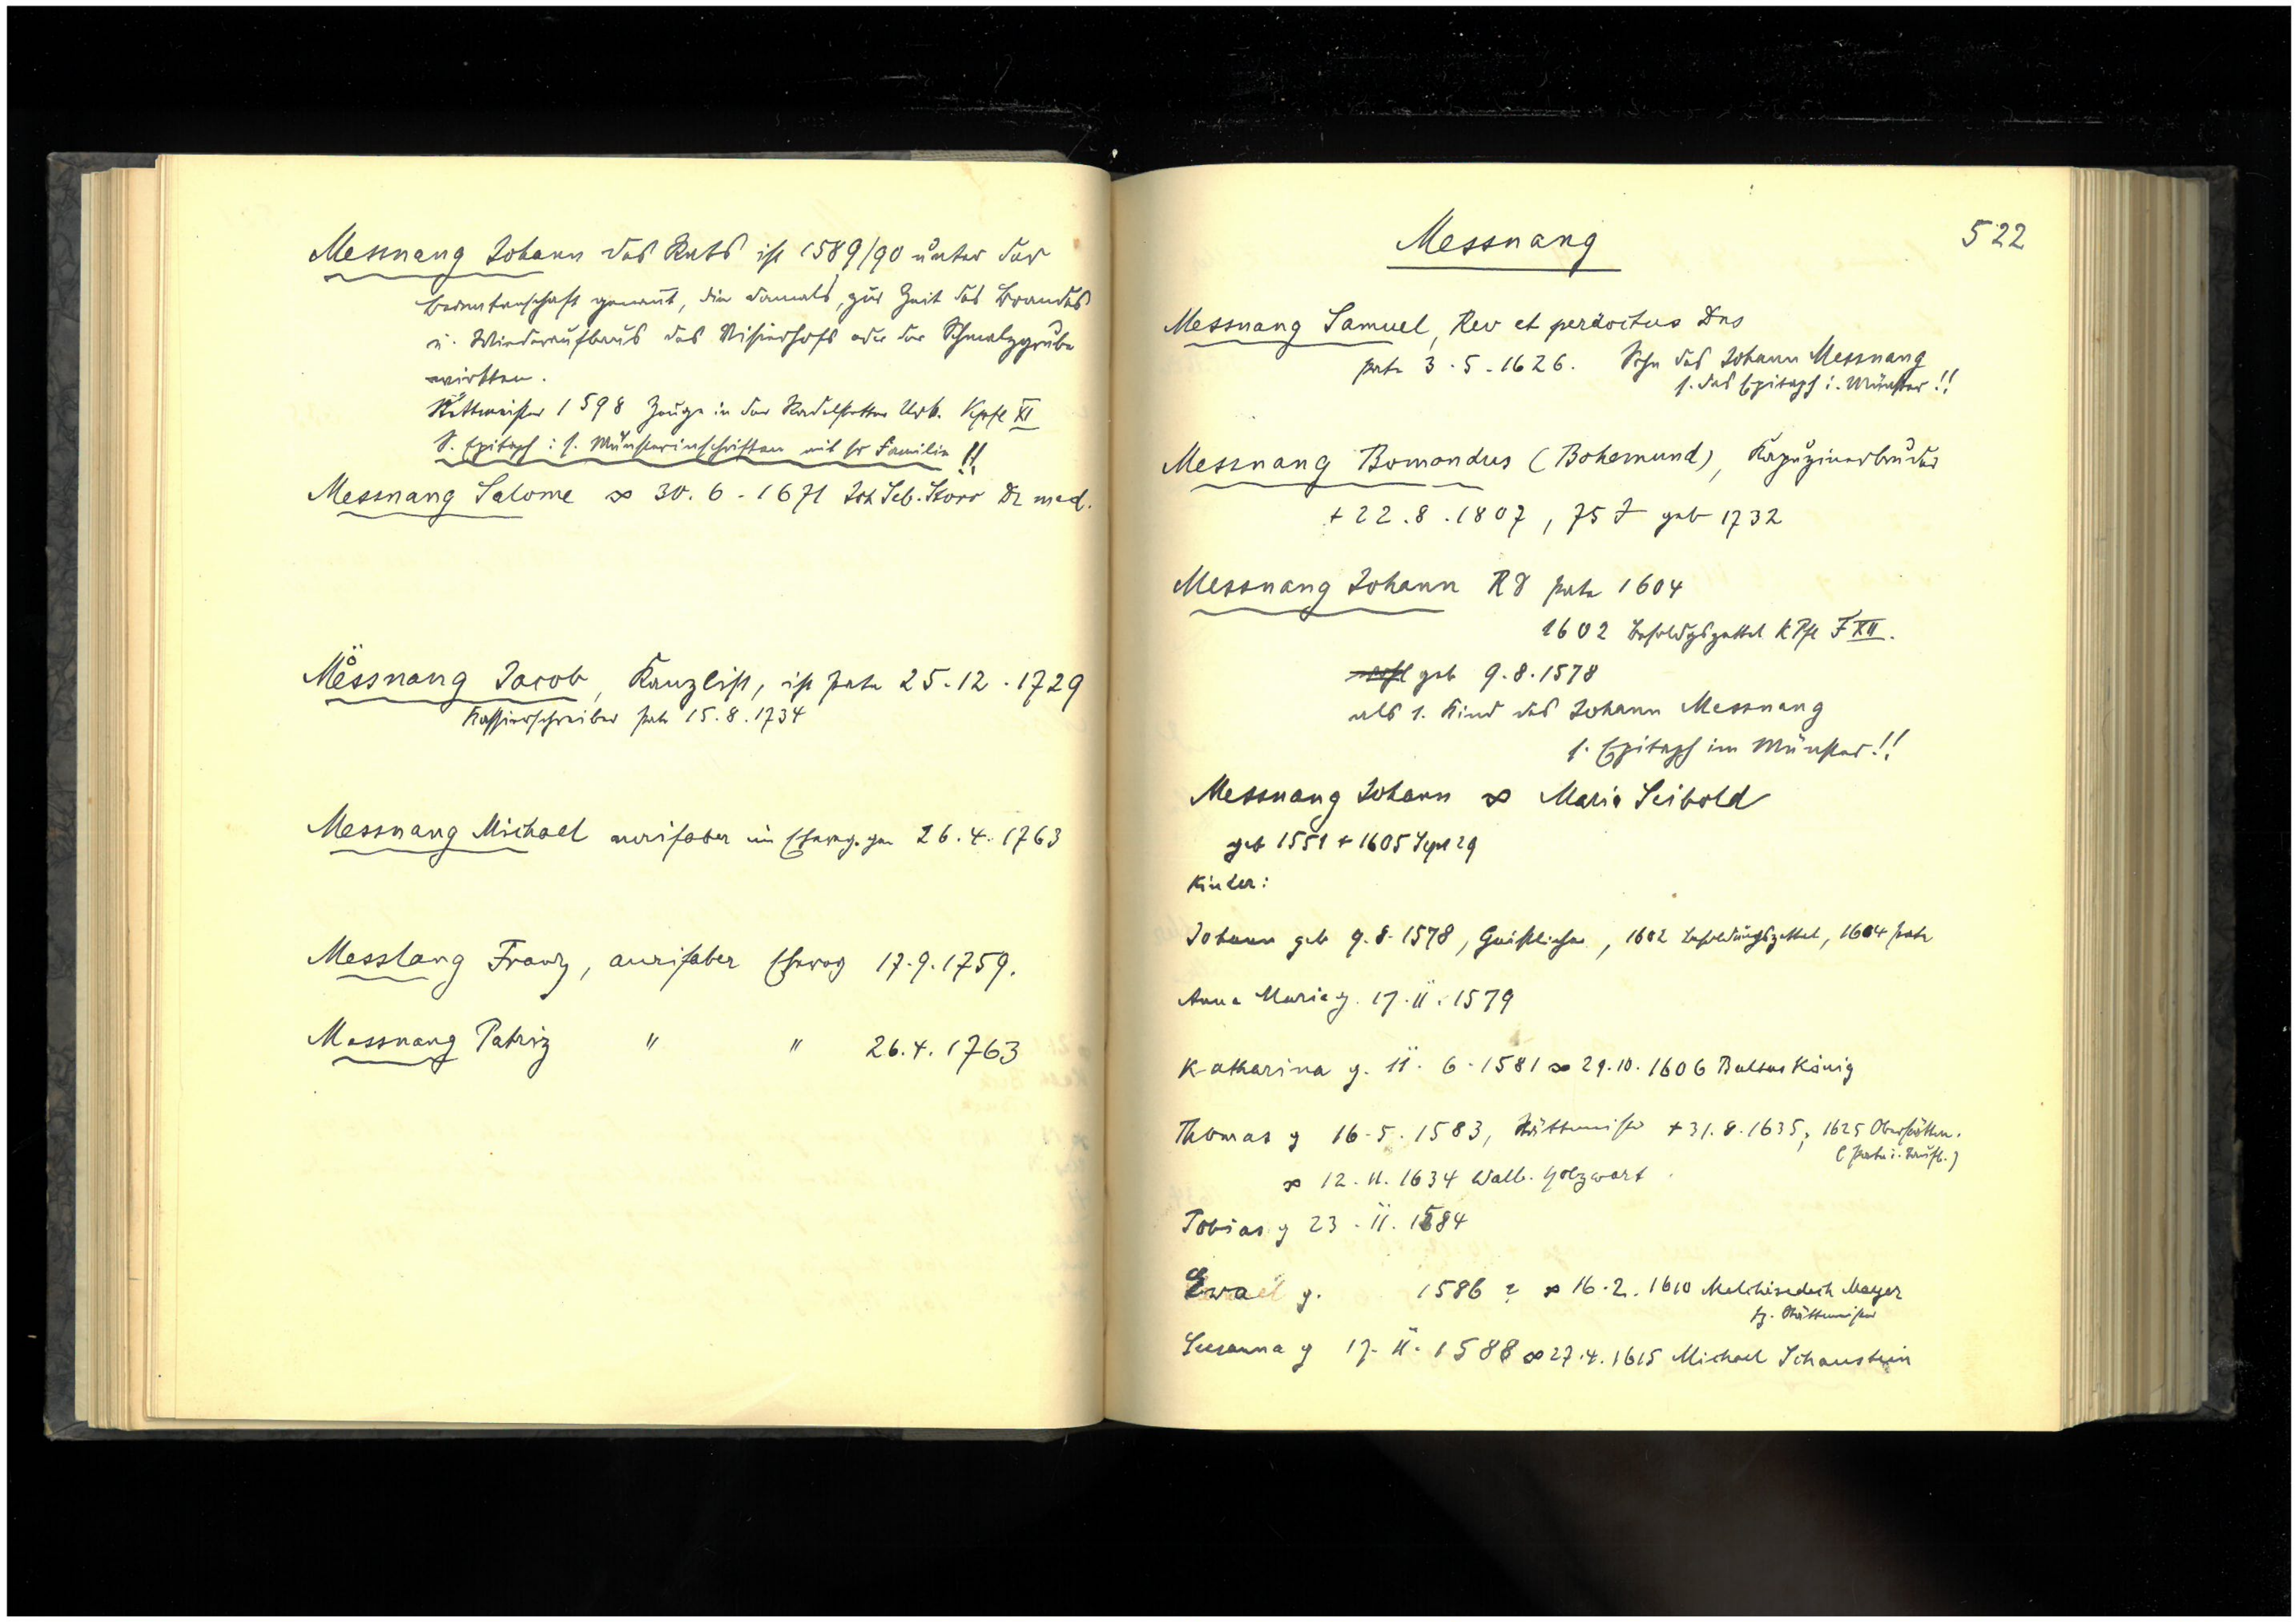 Messnang Johann des Rats ist 1589/90 unter der
Beamtenschaft genannt, die damals, zur Zeit des Brandes
u. Wiederaufbaus des Visierhofs oder der Schmalzgrube
wirkten.
Stättmeister 1598 Zeuge in der Urk. Kpfl XI
S. Epitaph: s. Münsterinschriften mit sr Familie !!
Messnang Salome ∞ 30.6.1671 Joh Seb. Storr Dr med.
Mössnang Jacob, Kanzlist, ist Pate 25.12.1729
Kassierschreiber Pate 15.8.1734
Messnang Michael aurifaber im 26.4.1763
Messlang Franz, aurifaber 17.9.1759.
Messnang Patriz " " 26.4.1763
Messnang 522
Messnang Samuel, Rev et perdoctus Dns
Pate 3.5.1626. Sohn des Johann Messnang
s. das Epitaph i. Münster!!
Messnang Bomondus (Bohemund), Kapuzinerbruder
+ 22.8.1807, 75 J geb 1732
Messnang Johann RD Pate 1604
1602 Besoldgszettel K Pfl F XII.
wohl geb 9.8.1578
als 1. Kind des Johann Messnang
s. Epitaph im Münster!!
Messnang Johann ∞ Maria Seibold
geb 1551 + 1605 Sept 29
Kinder:
Johann geb 9.8.1578, Geistlicher, 1602 Besoldungszettel, 1604 Pate
Anna Maria g. 17.11.1579
Katharina g. 11.6.1581 ∞ 29.10.1606 Baltas König
Thomas g 16.5.1583, Stättmeister + 31.8.1635; 1625 Oberstättm.
(Pate i. Taufb.)
∞ 12.11.1634 Walb. Holzwart
Tobias g 23.11.1584
Ewa g. 1586 ? ∞ 16.2.1610 Melchisedech Mayer
Stättmeister
Susanna g 17.11.1588 ∞ 27.4.1615 Michael Schaustein